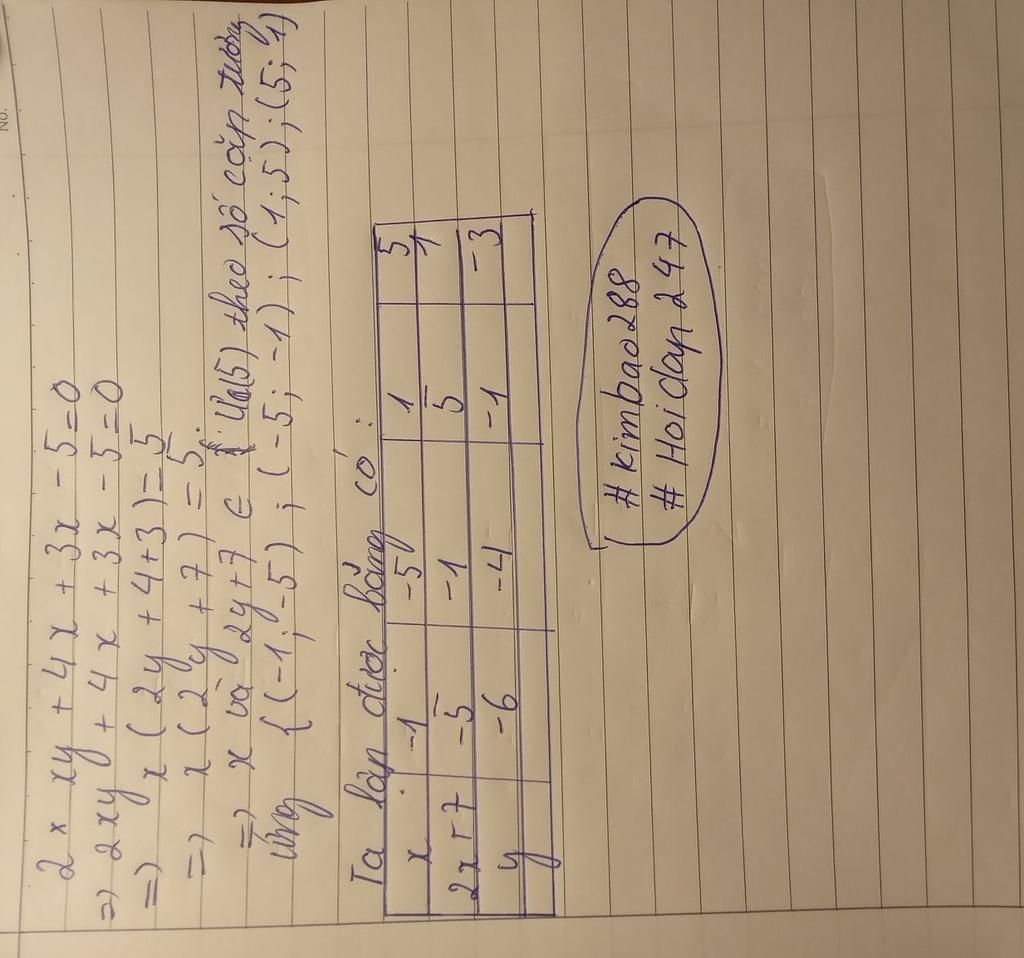 No.
2 x xy + 4x + 3x - 5 = 0
=> 2xy + 4x + 3x - 5 = 0
=> x (2y + 4 + 3) = 5
=> x (2y + 7) = 5.
=> x và 2y + 7 ∈ Ư(5) theo số cặp tương
ứng {(-1; -5) ; (-5; -1) ; (1; 5) ; (5; 1)
Ta lập được bảng có :
x -1 -5 1 5
2x + 7 -5 -1 5 1
y -6 -4 -1 -3
#kimbao288
#Hoidap247